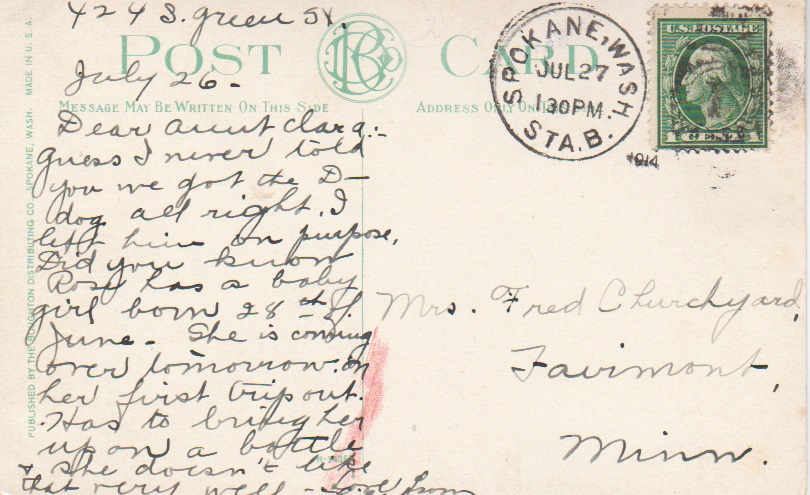 424 S. green St.
POST CARD
July 26-
MESSAGE MAY BE WRITTEN ON THIS SIDE
ADDRESS ONLY ON
Dear aunt Clara:-
Guess I never told
you we got the D-
dog all right. I
left him on purpose,
Did you know
Rose has a baby
girl born 28th of
June. She is coming
over tomorrow. on
her first trip out.
Has to bring her
up on a bottle
& she doesn't like
that very well - Love from
SPOKANE, WASH.
JUL 27
130 PM
STA. B.
1914
U.S. POSTAGE
1 CENT 1
Mrs. Fred Churchyard,
Fairmont,
Minn.
PUBLISHED BY THE BOUGHTON DISTRIBUTING CO. SPOKANE, WASH. MADE IN U.S.A.